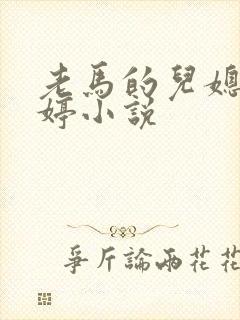 老馬的兒媳
婷小說
爭斤論兩花花